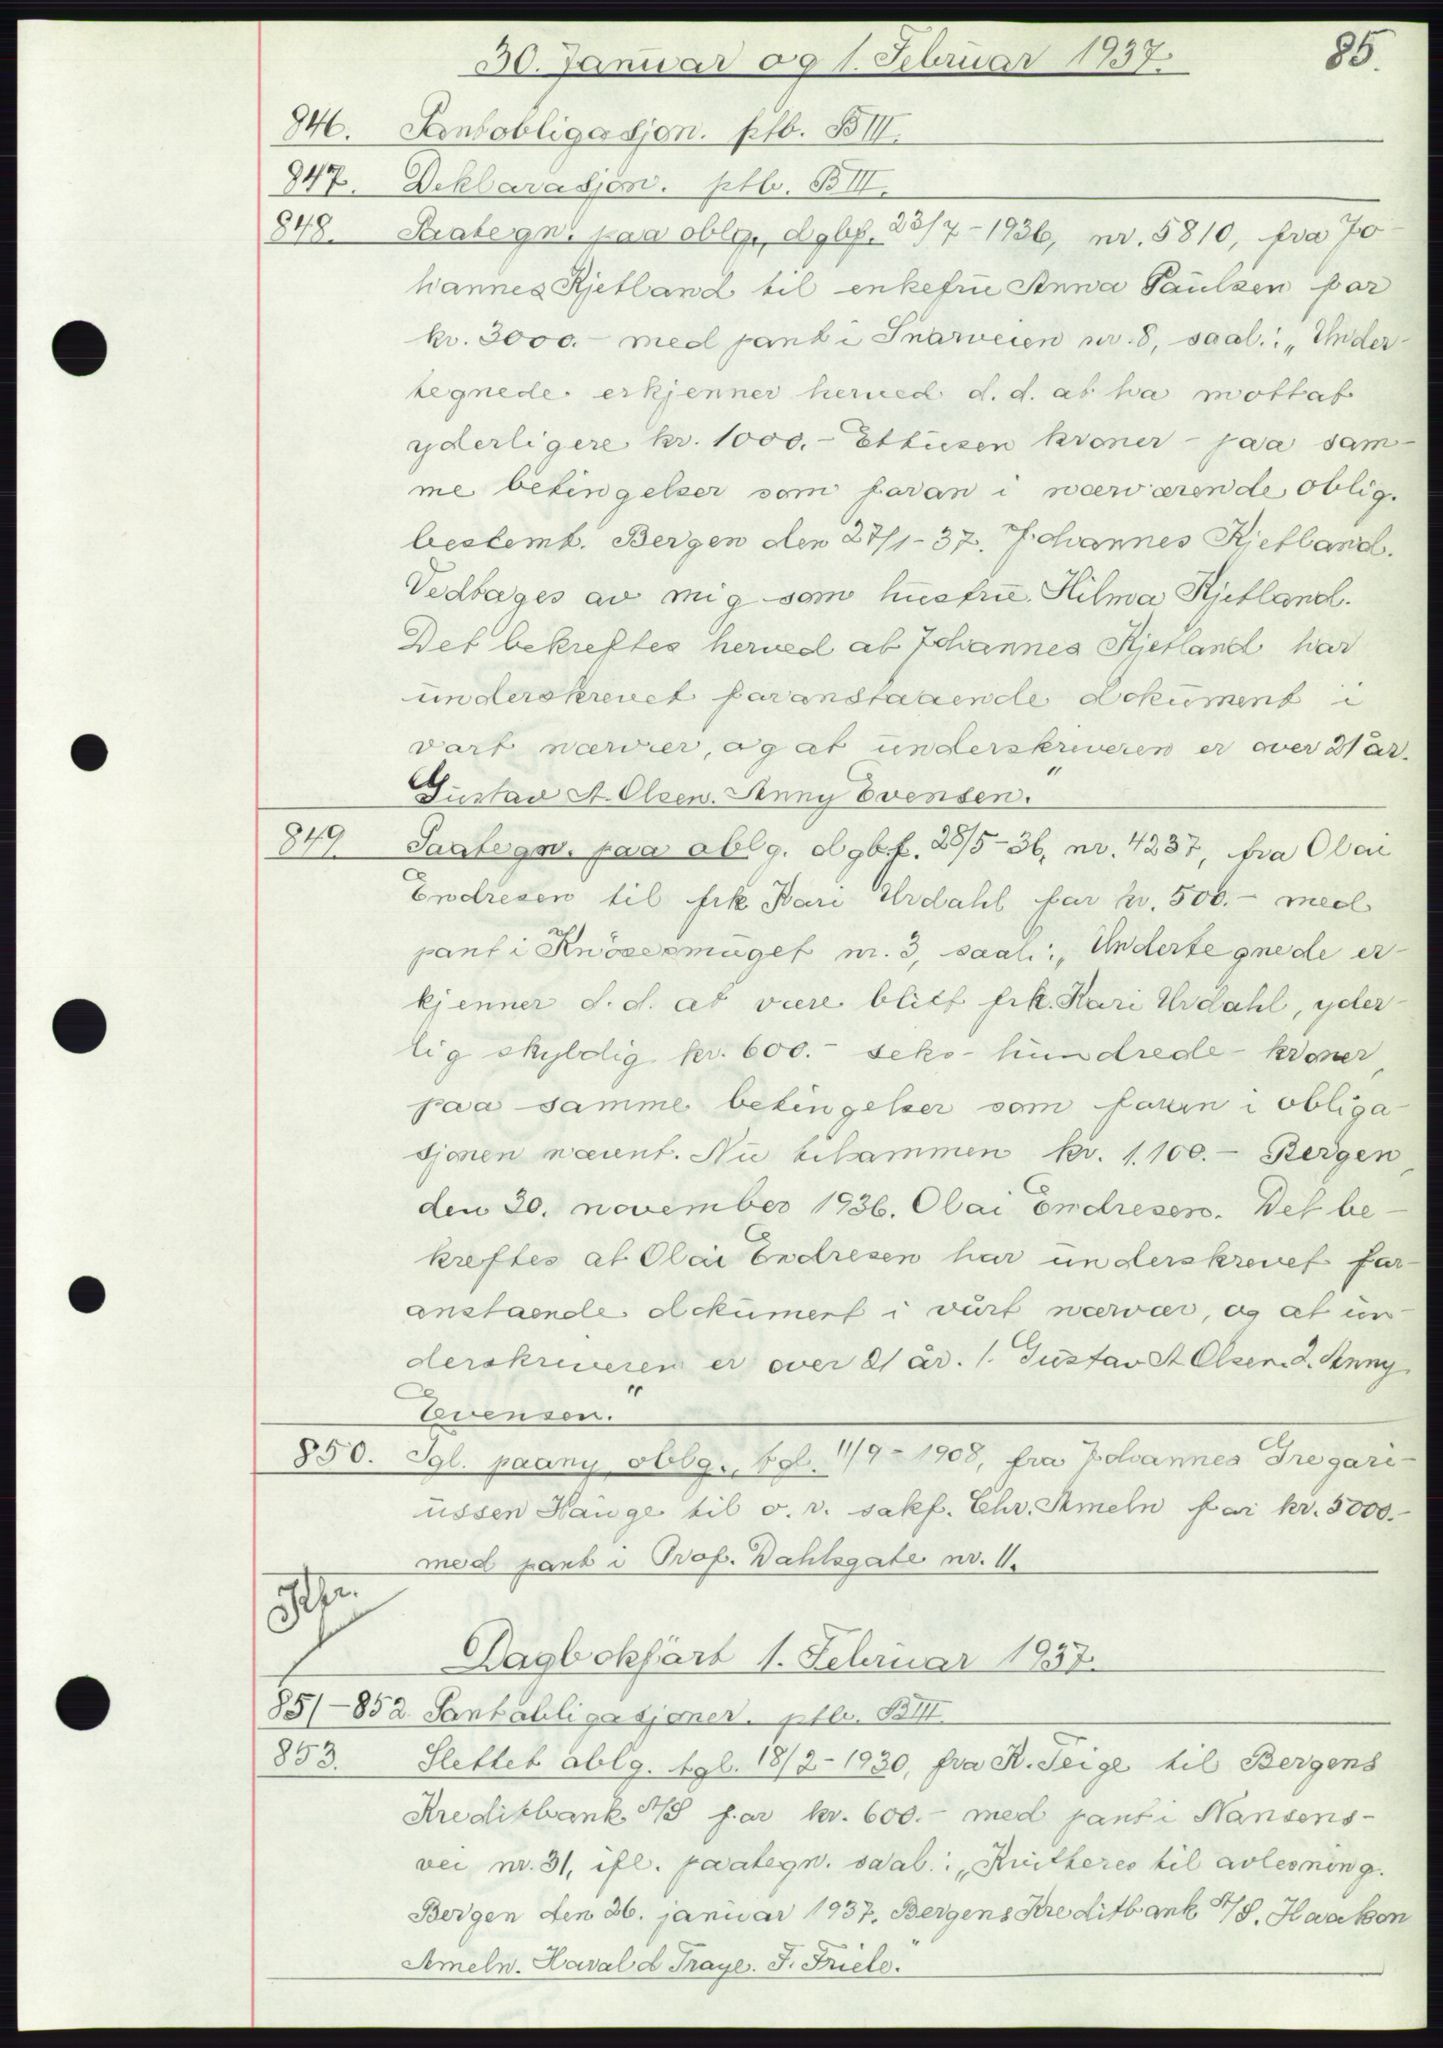 30. Januar og 1. Februar 1937.
85.
846. Pantobligasjon. ptb. B III.
847. Deklarasjon. ptb. B III.
848. Paategn. paa oblg., dgbf. 23/7-1936, nr. 5810, fra Jo-
hannes Kjetland til enkefru Anna Paulsen for
kr. 3000.- med pant i Snarveien nr. 8, saal.: „Under-
tegnede erkjenner herved d. d. at ha mottat
yderligere kr. 1000.- Ettusen kroner - paa sam-
me betingelser som foran i nærværende oblig.
bestemt. Bergen den 27/1-37. Johannes Kjetland.
Vedtages av mig som hustru. Hilma Kjetland.
Det bekreftes herved at Johannes Kjetland har
underskrevet foranstaaende dokument i
vårt nærvær, og at underskriveren er over 21 år.
Gustav A. Olsen. Anny Evensen."
849. Paategn. paa oblg. dgbf. 28/5-36, nr. 4237, fra Olai
Endresen til frk Kari Urdahl for kr. 500.- med
pant i Knøsesmuget nr. 3, saal.: „Undertegnede er-
kjenner d. d. at være blitt frk. Kari Urdahl, yder-
lig skyldig kr. 600.- seks-hundrede-kroner,
paa samme betingelser som foran i obliga-
sjonen nævnt. Nu tilsammen kr. 1.100.- Bergen,
den 30. november 1936. Olai Endresen. Det be-
kreftes at Olai Endresen har underskrevet for-
anstaende dokument i vårt nærvær, og at un-
derskriveren er over 21 år. 1. Gustav A Olsen. 2. Anny
Evensen."
850. Tgl. paany oblg., tgl. 11/9-1908, fra Johannes Gregari-
ussen Hauge til o. r. sakf. Chr. Ameln for kr. 5000.-
med pant i Prof. Dahlsgate nr. 11.
Dagbokført 1. Februar 1937.
851-852 Pantobligasjoner. ptb. B III.
853. Slettet oblg. tgl. 18/2-1930, fra K. Teige til Bergens
Kreditbank A/S for kr. 600.- med pant i Nansens-
vei nr. 31, ifl. paategn. saal.: „Kvitteres til avlesning.
Bergen den 26. januar 1937. Bergens Kreditbank A/S. Haakon
Ameln. Harald Traye. F. Friele."